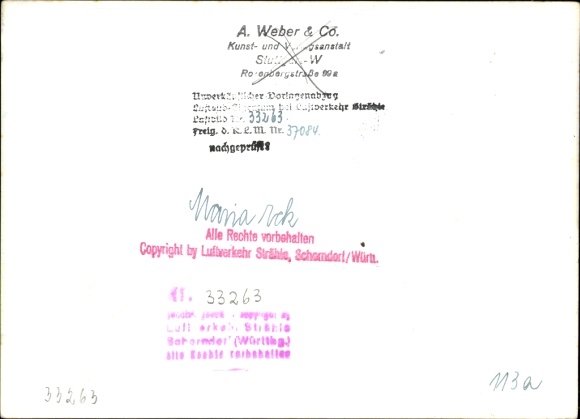 A. Weber & Co.
Kunst- und Verlagsanstalt
Stuttgart-W
Rosenbergstraße 89a
Unverkäuflicher Vorlagenabzug
bei Luftverkehr Strähle
Luftbild Nr. 33263
Freig. d. R.L.M. Nr. 37084
nachgeprüft!
Maria
Alle Rechte vorbehalten
Copyright by Luftverkehr Strähle, Schorndorf/Württ.
Nr. 33263
copyright by
Luftverkehr Strähle
Schorndorf (Württbg.)
Alle Rechte vorbehalten
33263
113a